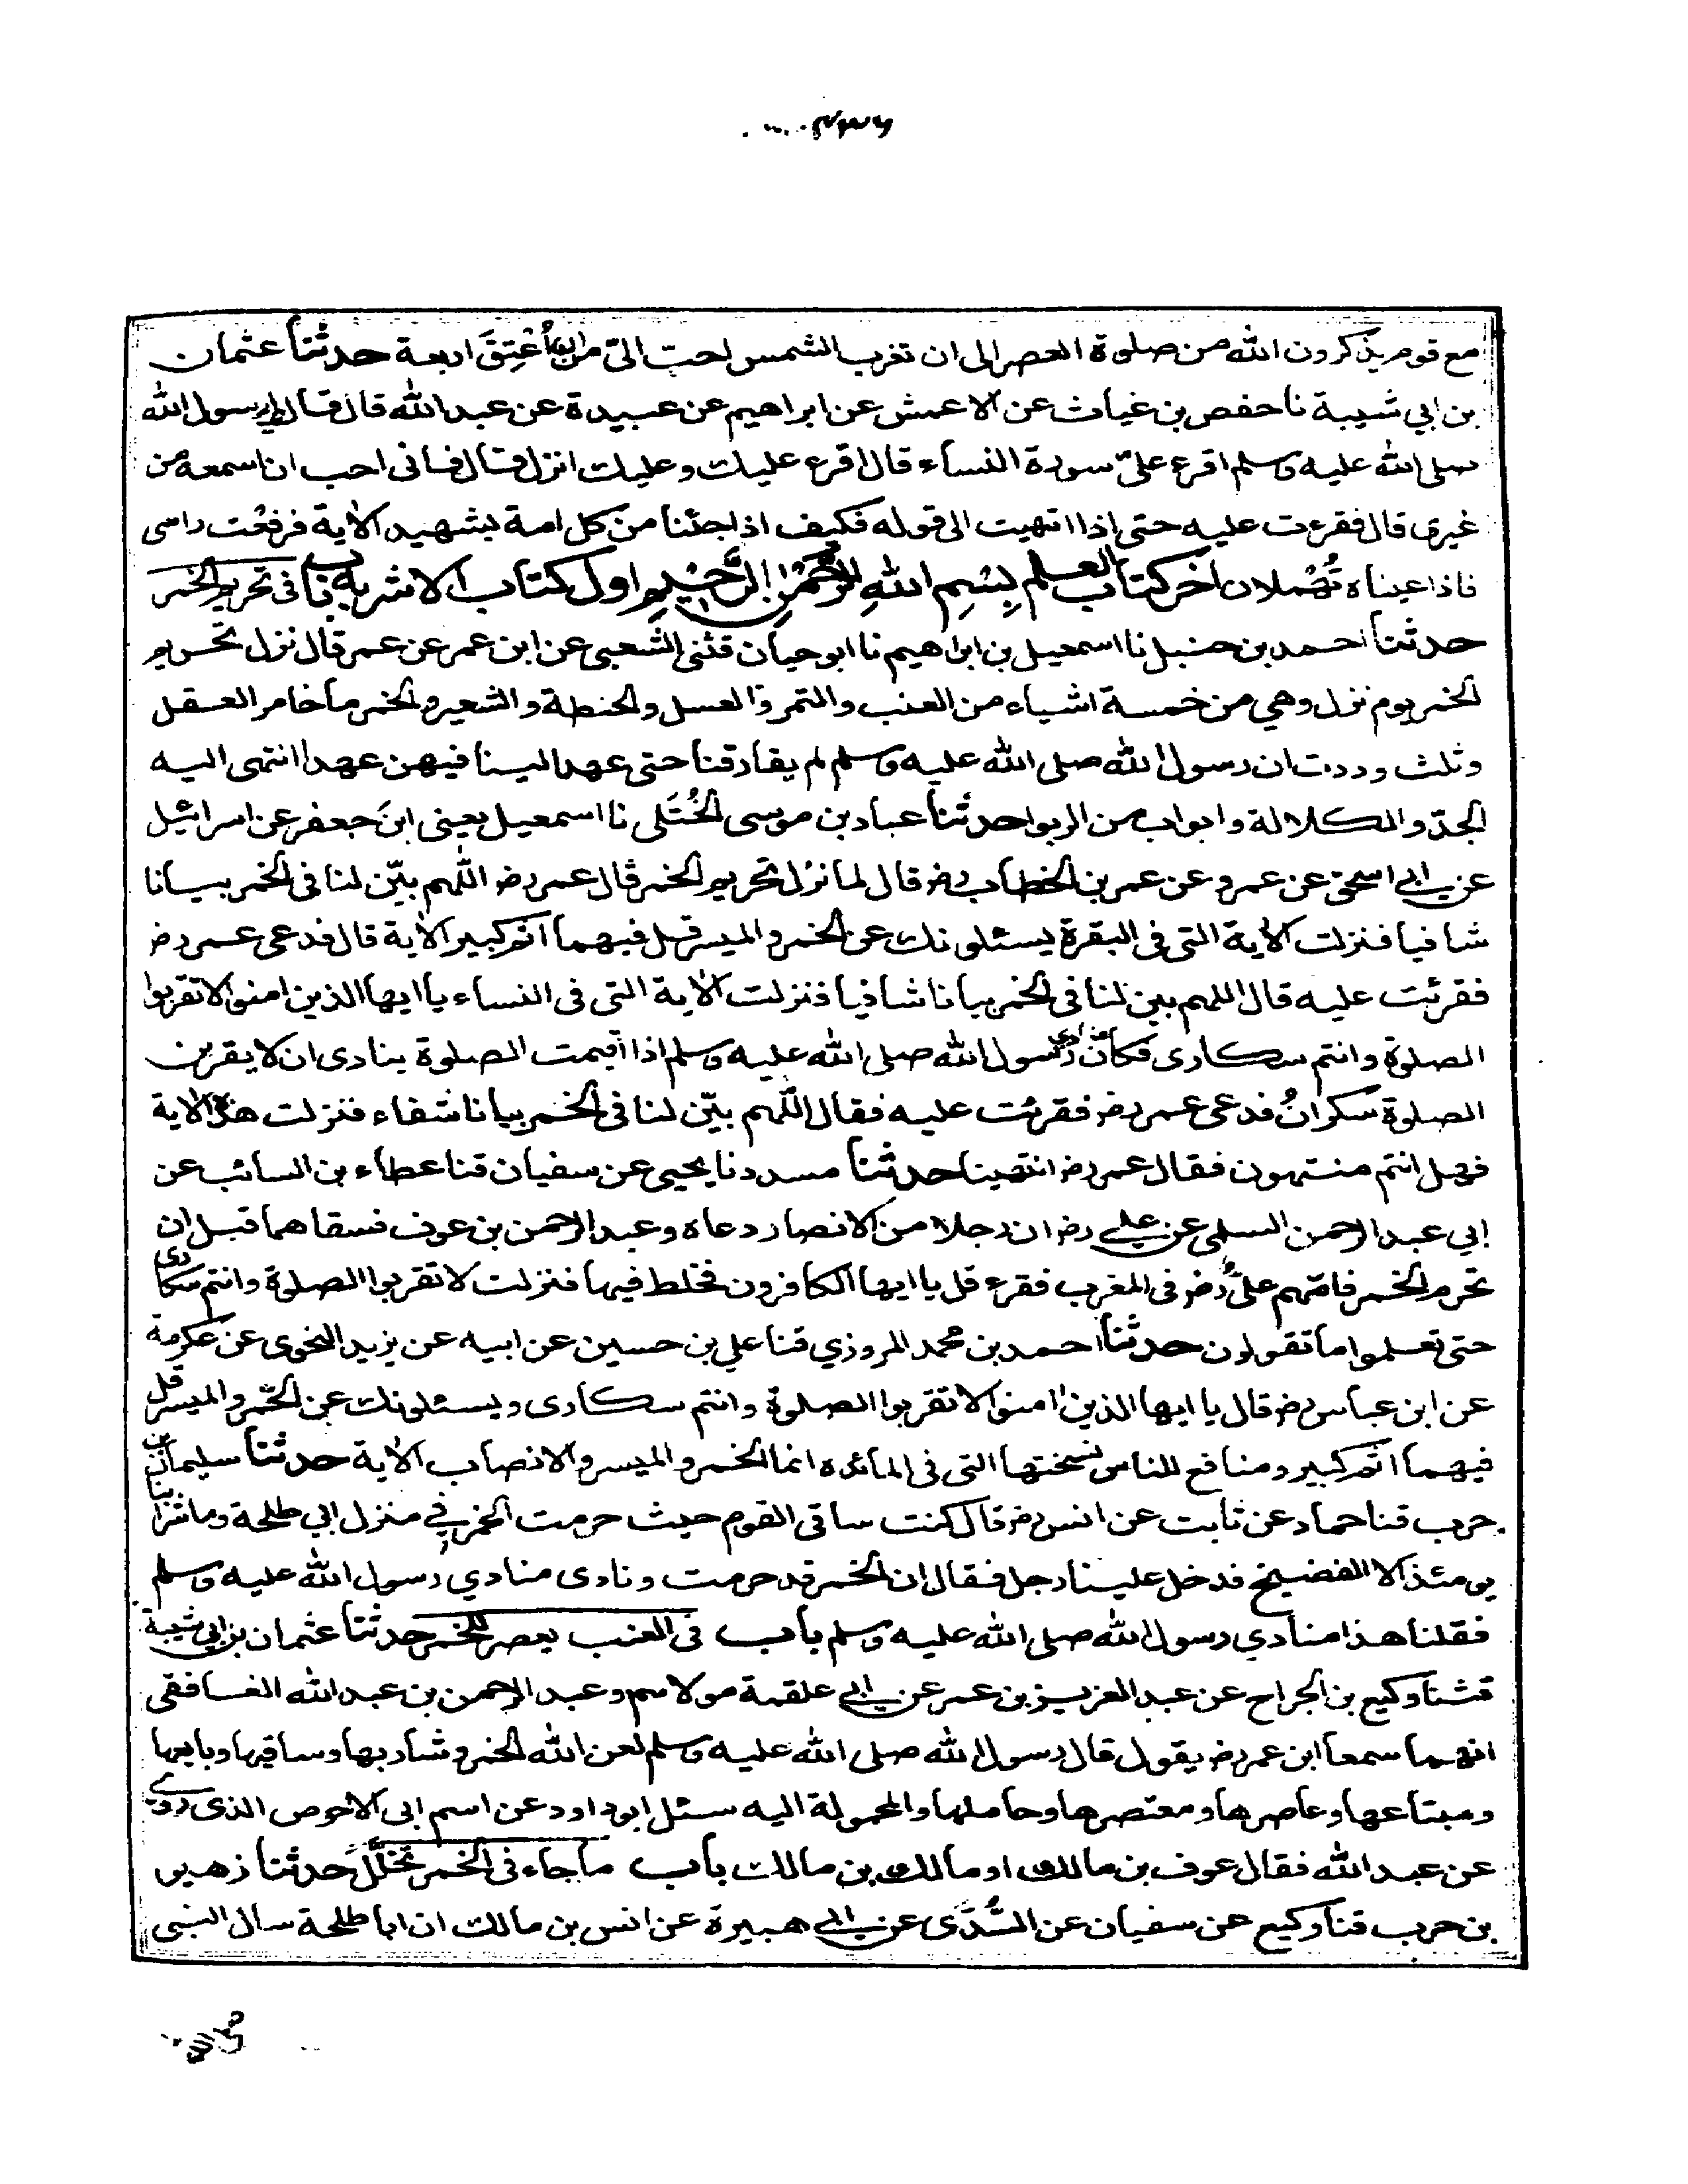 مع قوم يذكرون الله من صلوة العصر الى ان تغرب الشمس احب الىّ من ان اُعْتِقَ اربعة حدثنا عثمان
بن ابي شيبة نا حفص بن غياث عن الاعمش عن ابراهيم عن عبيدة عن عبد الله قال قال لي رسول الله
صلى الله عليه وسلم اقرء علىّ سورة النساء قال اقرء عليك وعليك انزل قال فانى احب ان اسمعه من
غيرى قال فقرءت عليه حتى اذا انتهيت الى قوله فكيف اذا جئنا من كل امة بشهيد الاية فرفعت راسى
فاذا عيناه تُهْملان اخر كتاب العلم بِسْمِ اللهِ الرَّحْمٰنِ الرَّحِيْمِ اول كتاب الاشربة باب فى تحريم الخمر
حدثنا احمد بن حنبل نا اسمعيل بن ابراهيم نا ابو حيان قثنى الشعبى عن ابن عمر عن عمر قال نزل تحريم
الخمر يوم نزل وهي من خمسة اشياء من العنب والتمر والعسل والحنطة والشعير والخمر ما خامر العقل
وثلث وددت ان رسول الله صلى الله عليه وسلم لم يفارقنا حتى عهد الينا فيهن عهدا انتهى اليه
الجدّ والكلالة وابواب من الربوا حدثنا عباد بن موسى الخُتَلى نا اسمعيل يعنى ابن جعفر عن اسرائيل
عن ابي اسحق عن عمرو عن عمر بن الخطاب رضـ قال لما نزل تحريم الخمر قال عمر رضـ اللهم بيّن لنا فى الخمر بيانا
شافيا فنزلت الاية التى فى البقرة يسئلونك عن الخمر والميسر قل فيهما اثم كبير الاية قال فدعى عمر رضـ
فقرئت عليه قال اللهم بين لنا فى الخمر بيانا شافيا فنزلت الاية التى فى النساء يا ايها الذين امنوا لا تقربوا
الصلوة وانتم سكارى فكان منادى رسول الله صلى الله عليه وسلم اذا اقيمت الصلوة ينادى ان لا يقربن
الصلوة سكرانُ فدعى عمر رضـ فقرئت عليه فقال اللّهم بيّن لنا فى الخمر بيانا شفاء فنزلت هذه الاية
فهل انتم منتهون فقال عمر رضـ انتهينا حدثنا مسدد نا يحيى عن سفيان قنا عطاء بن السائب عن
ابي عبد الرحمن السلمى عن علي رضـ ان رجلا من الانصار دعاه وعبد الرحمن بن عوف فسقاهما قبل ان
تحرم الخمر فامّهم علىّ رضـ فى المغرب فقرء قل يا ايها الكافرون فخلط فيها فنزلت لا تقربوا الصلوة وانتم سكارى
حتى تعلموا ما تقولون حدثنا احمد بن محمد المروذي قنا علي بن حسين عن ابيه عن يزيد النحوى عن عكرمة
عن ابن عباس رضـ قال يا ايها الذين امنوا لا تقربوا الصلوة وانتم سكارى ويسئلونك عن الخمر والميسر قل
فيهما اثم كبير ومنافع للناس نسختها التى فى المائده انما الخمر والميسر والانصاب الاية حدثنا سليمان بن
حرب قنا حماد عن ثابت عن انس رضـ قال كنت ساقى القوم حيث حرمت الخمر في منزل ابي طلحة وما شرابنا
يومئذ الا الفضيخ فدخل علينا رجل فقال ان الخمر قد حرمت ونادى منادي رسول الله عليه وسلم
فقلنا هذا منادي رسول الله صلى الله عليه وسلم باب فى العنب يعصر للخمر حدثنا عثمان بن ابي شيبة
قثنا وكيع بن الجراح عن عبد العزيز بن عمر عن ابي علقمة مولاهم وعبد الرحمن بن عبد الله الغافقى
انهما سمعا ابن عمر رضـ يقول قال رسول الله صلى الله عليه وسلم لعن الله الخمر وشاربها وساقيها وبايعها
ومبتاعها وعاصرها ومعتصرها وحاملها والمحمولة اليه سئل ابو داود عن اسم ابى الاحوص الذى روى
عن عبد الله فقال عوف بن مالك او مالك بن مالك باب ما جاء فى الخمر تخلّل حدثنا زهير
بن حرب قنا وكيع عن سفيان عن السُّدّى عن ابي هبيرة عن انس بن مالك ان ابا طلحة سال النبى